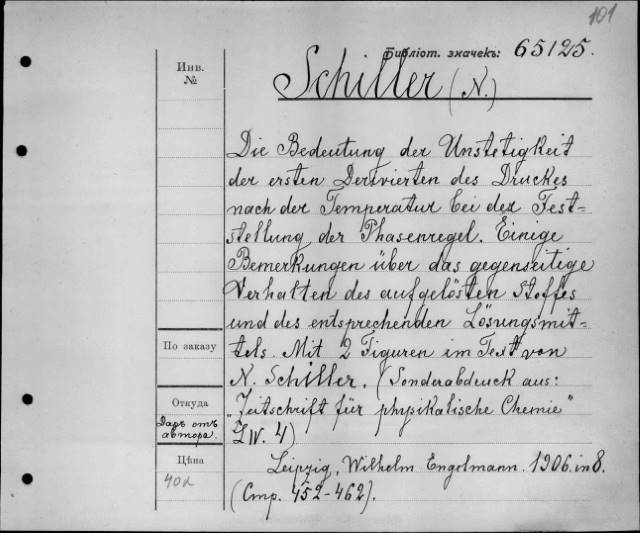 101
Библіот. значекъ: 65125.
Инв.
№
Schiller (N.)
Die Bedeutung der Unstetigkeit
der ersten Derivierten des Druckes
nach der Temperatur bei der Fest=
stellung der Phasenregel. Einige
Bemerkungen über das gegenseitige
Verhalten des aufgelösten Stoffes
und des entsprechenden Lösungsmit=
tels. Mit 2 Figuren im Text von
N. Schiller. (Sonderabdruck aus:
„Zeitschrift für physikalische Chemie"
LIV. 4)
Leipzig, Wilhelm Engelmann. 1906. in 8.
(Стр. 452-462).
По заказу
Откуда
Даръ отъ
автора.
Цѣна